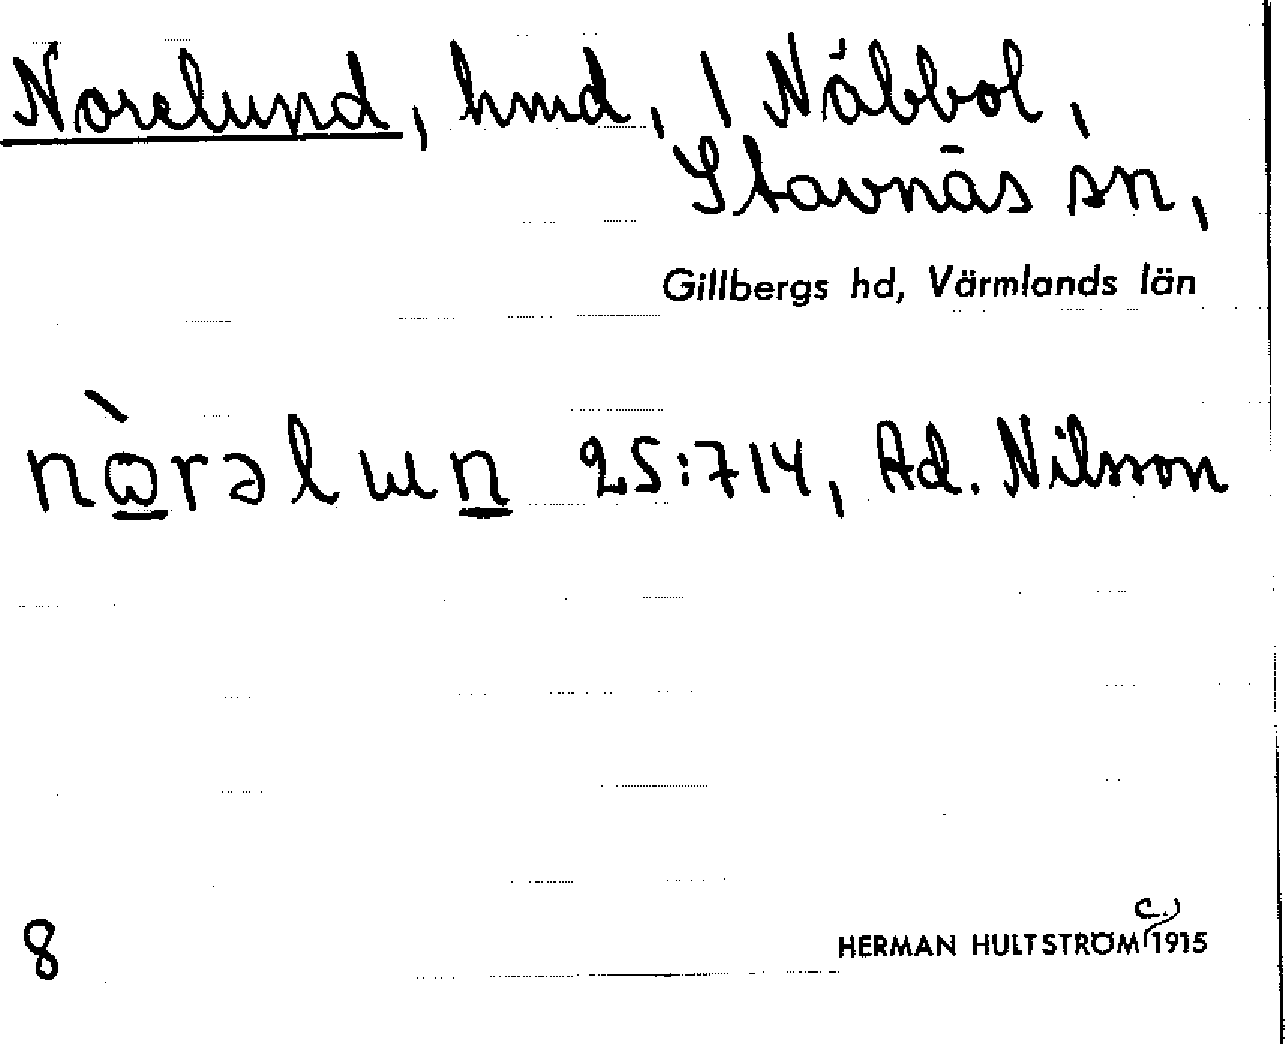 Norelund, hmd, 1 Näbbol,
Stavnäs sn,
Gillbergs hd, Värmlands län
nò̱rəlɯṉ 25:714, Ad. Nilsson
8
HERMAN HULTSTRÖM c.) 1915